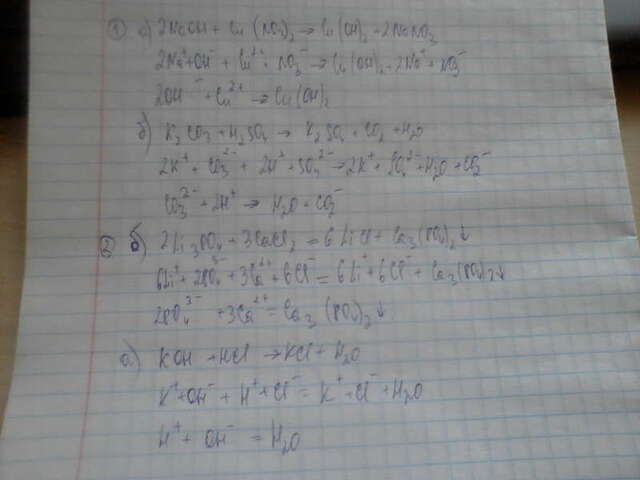 ① а) 2NaOH + Cu(NO₃)₂ → Cu(OH)₂ + 2NaNO₃
2Na⁺ + OH⁻ + Cu²⁺ + NO₃⁻ → Cu(OH)₂ + 2Na⁺ + NO₃⁻
2OH⁻ + Cu²⁺ → Cu(OH)₂
б) K₂CO₃ + H₂SO₄ → K₂SO₄ + CO₂ + H₂O
2K⁺ + CO₃²⁻ + 2H⁺ + SO₄²⁻ → 2K⁺ + SO₄²⁻ + H₂O + CO₂⁻
CO₃²⁻ + 2H⁺ → H₂O + CO₂⁻
② б) 2Li₃PO₄ + 3CaCl₂ = 6LiCl + Ca₃(PO₄)₂↓
6Li⁺ + 2PO₄³⁻ + 3Ca²⁺ + 6Cl⁻ = 6Li⁺ + 6Cl⁻ + Ca₃(PO₄)₂↓
2PO₄³⁻ + 3Ca²⁺ = Ca₃(PO₄)₂↓
а) KOH + HCl → KCl + H₂O
K⁺ + OH⁻ + H⁺ + Cl⁻ = K⁺ + Cl⁻ + H₂O
H⁺ + OH⁻ = H₂O